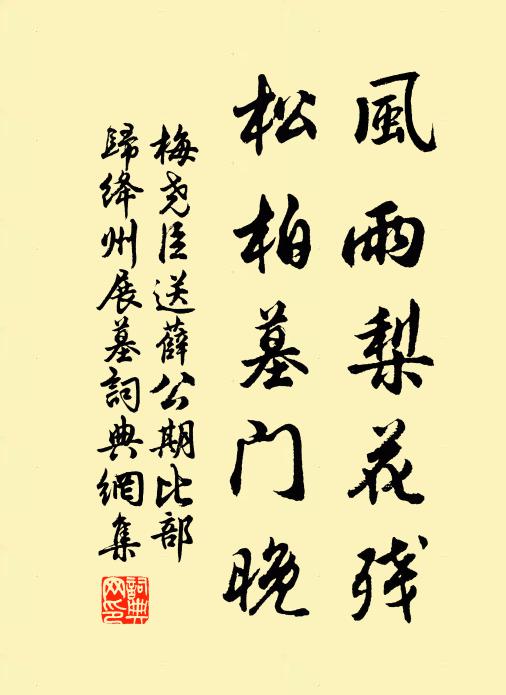 風雨梨花残
松柏墓门晚
梅尧臣送薛公期比部
歸绛州展墓詞典網集
詞典网印